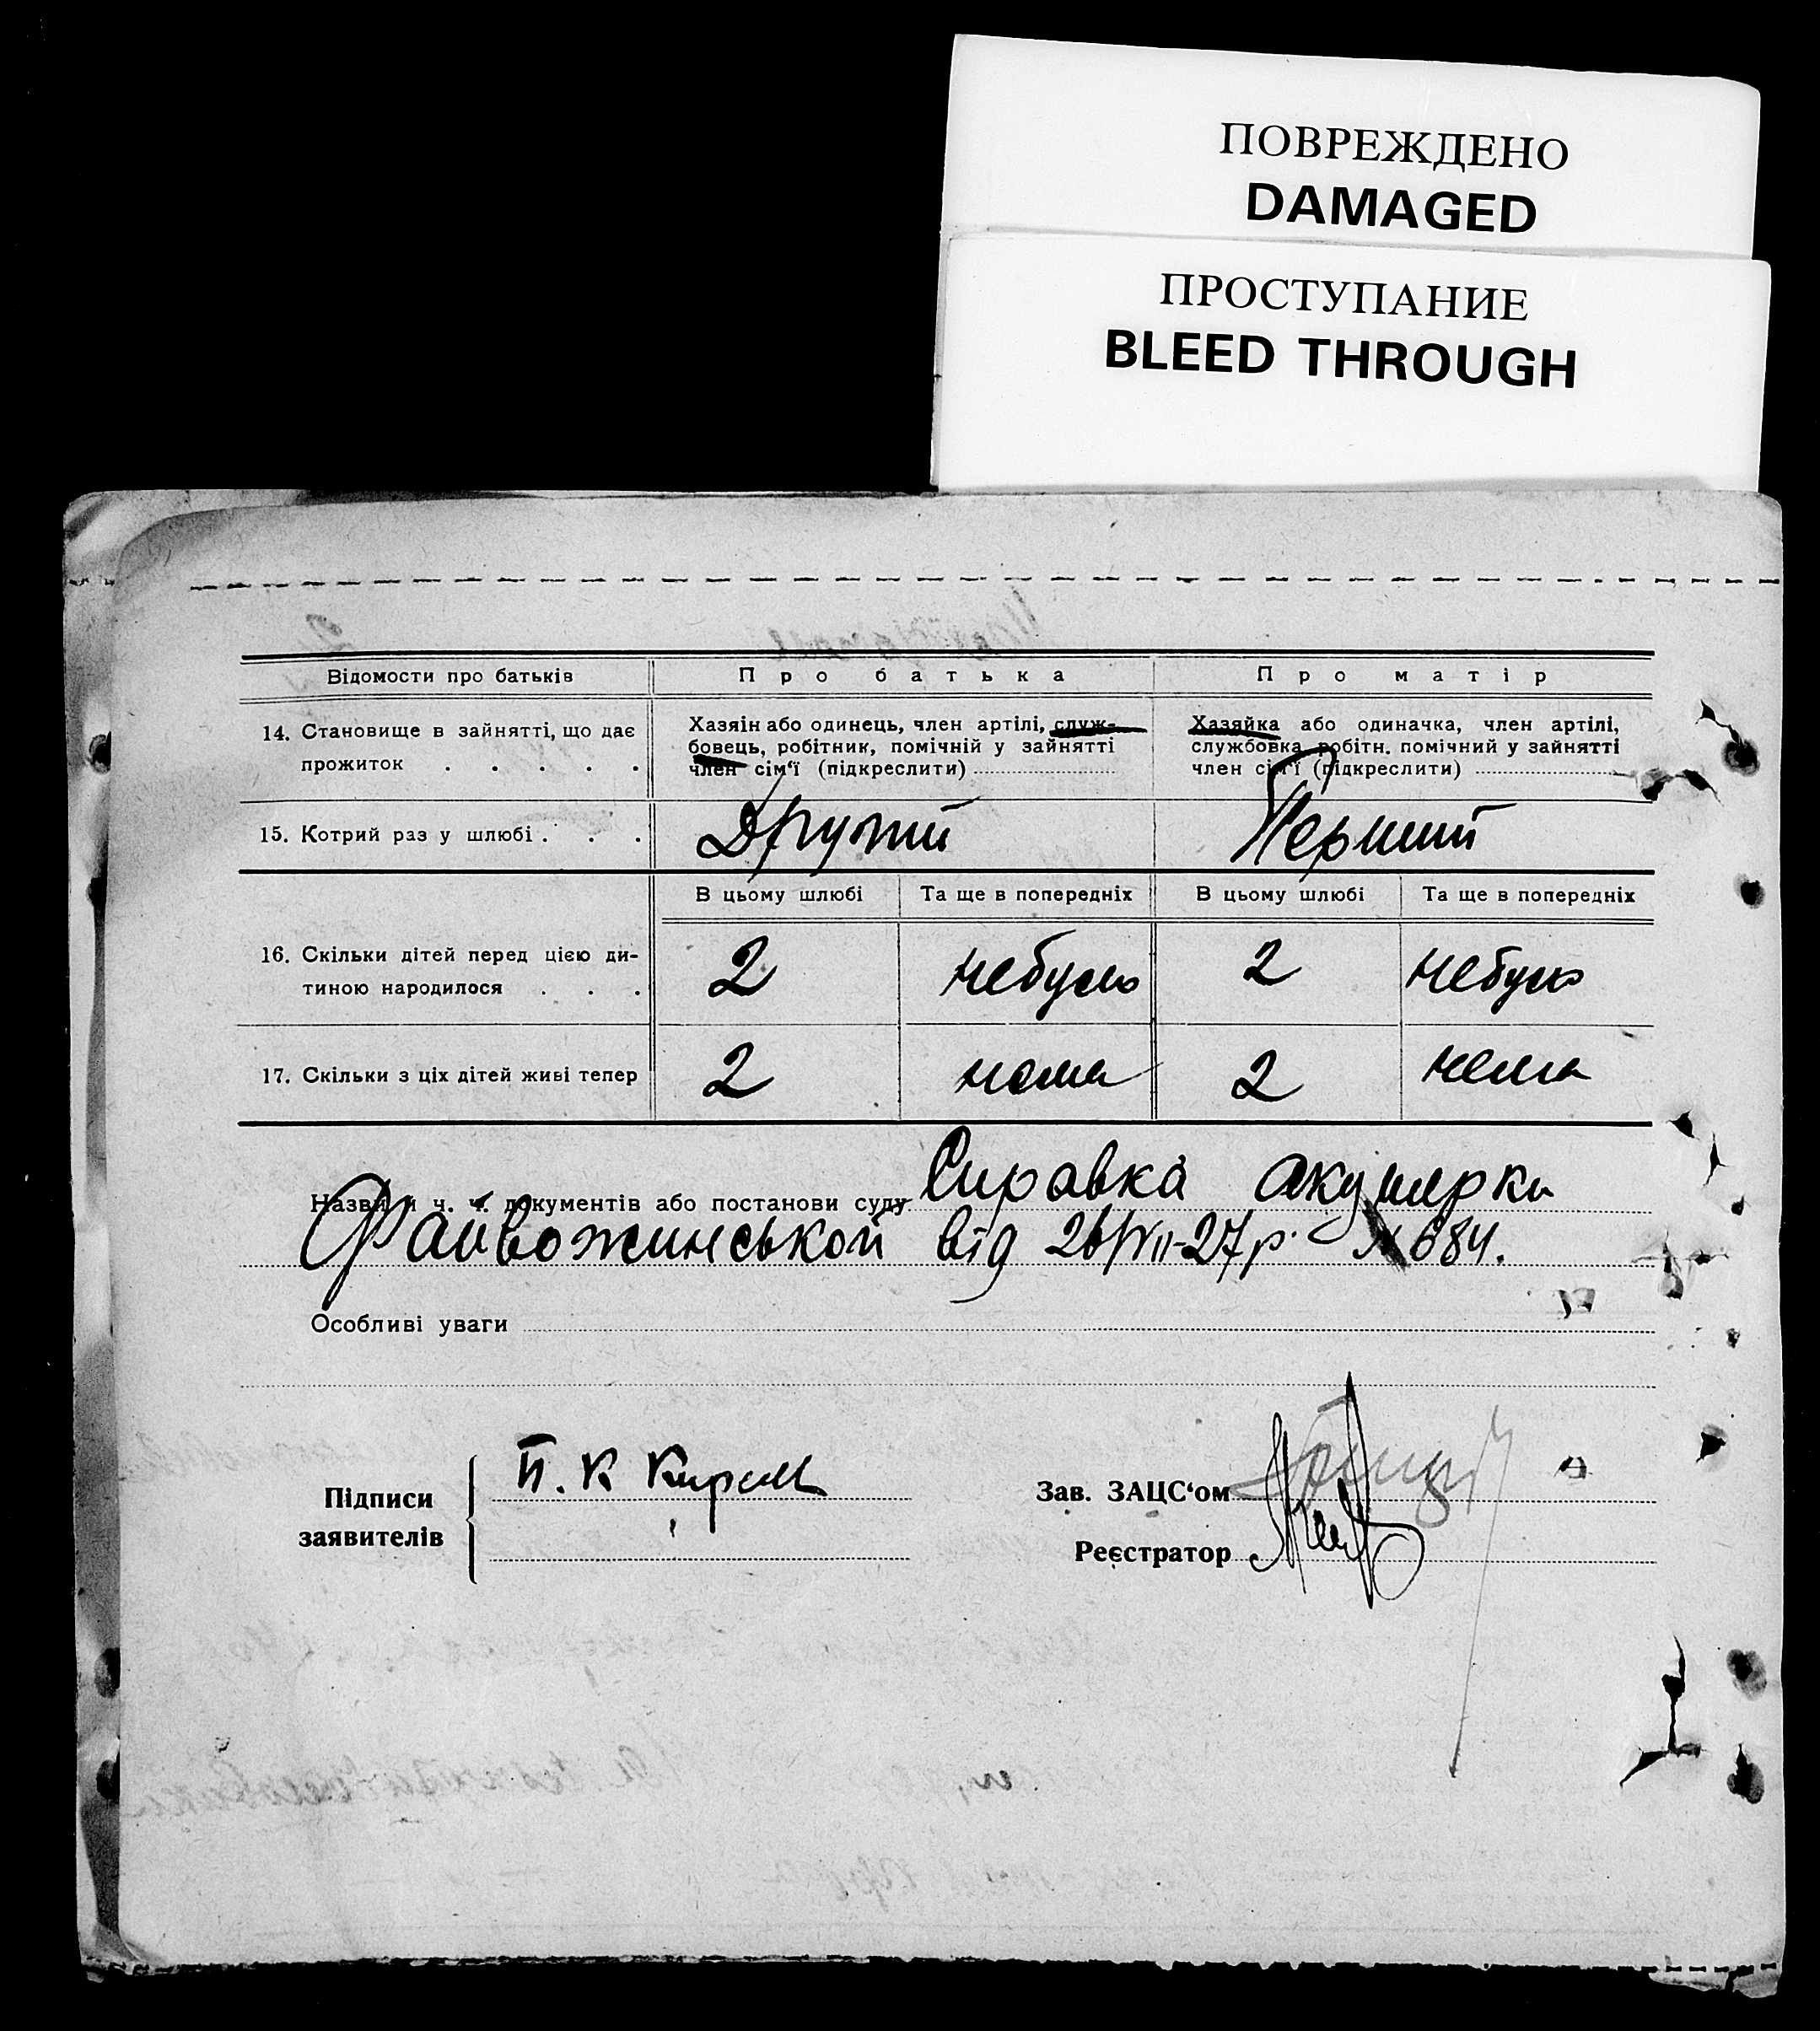 ПОВРЕЖДЕНО
DAMAGED
ПРОСТУПАНИЕ
BLEED THROUGH
Відомости про батьків Про батька Про матір
14. Становище в зайнятті, що дає прожиток . . . . .
Хазяін або одинець, член артілі, служ-
бовець, робітник, помічній у зайнятті
член сім‘ї (підкреслити)
Хазяйка або одиначка, член артілі,
службовка робітн. помічний у зайнятті
член сім‘ї (підкреслити)
15. Котрий раз у шлюбі . . . Другий Перший
В цьому шлюбі Та ще в попередніх В цьому шлюбі Та ще в попередніх
16. Скільки дітей перед цією ди-
тиною народилося . . . 2 небуло 2 небуло
17. Скільки з ціх дітей живі тепер 2 нема 2 нема
Назви й ч. ч. документів або постанови суду Справка акушерки
від 26/VII-27 р. № 684.
Особливі уваги
Підписи
заявителів
П. К
Зав. ЗАЦС‘ом
Реєстратор